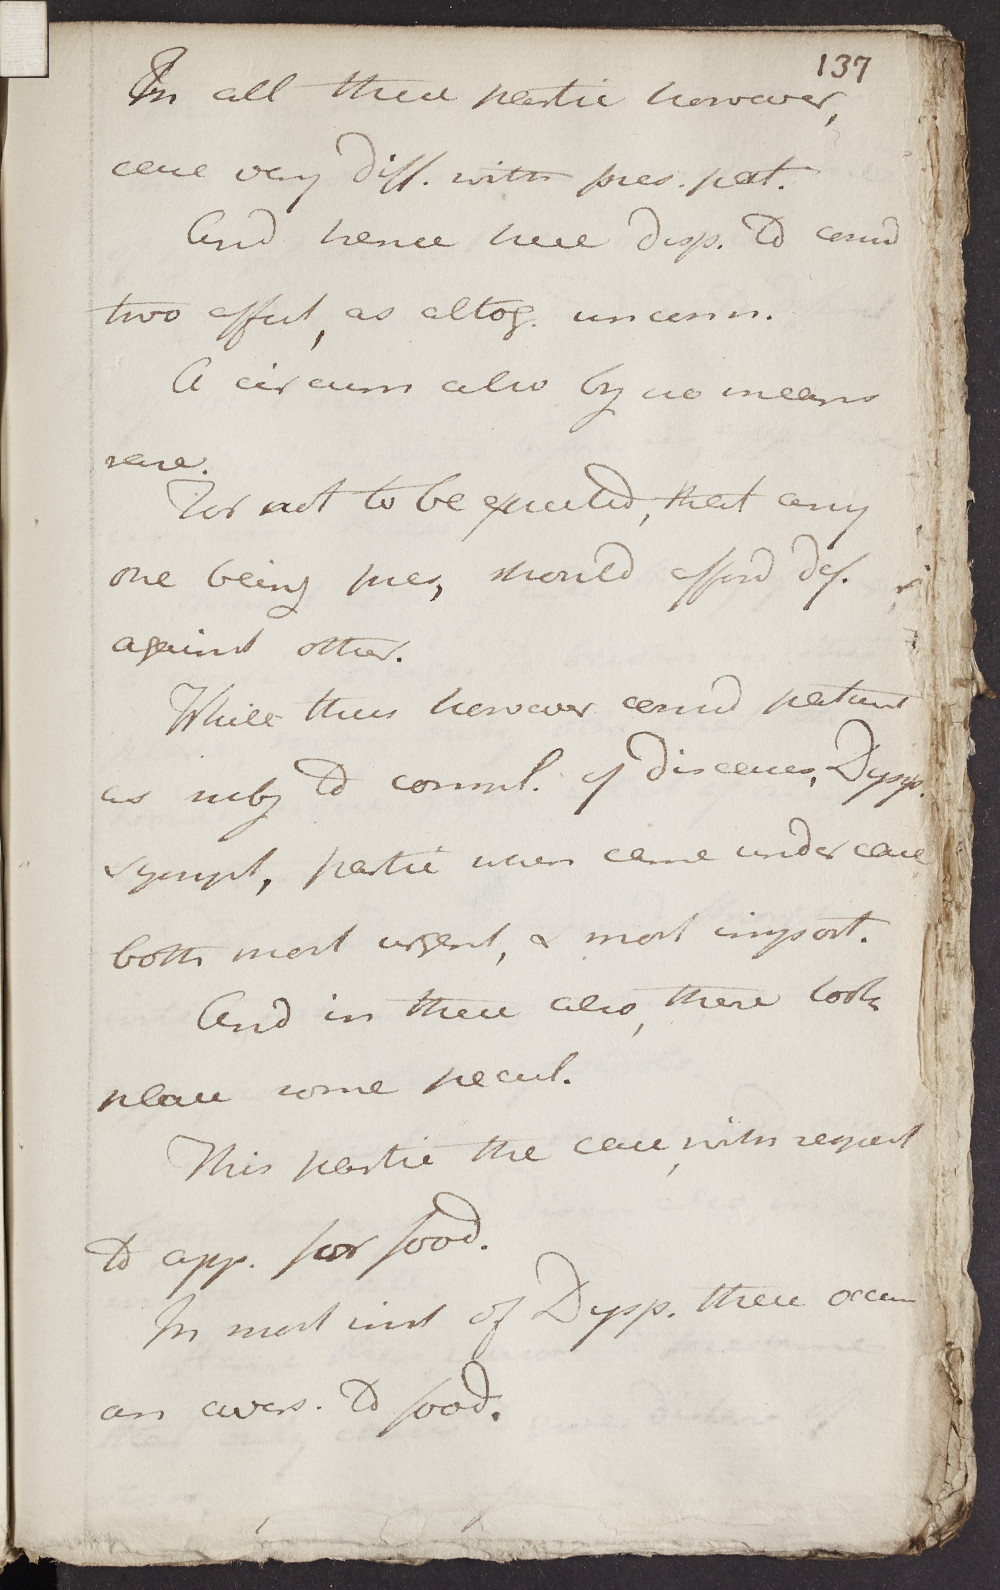 137
In all these partic however,
case very diff. with pres. pat.
And hence here disp. to consid
two affect, as altog. unconn.
A circum also by no means
rare.
For not to be expected, that any
one being pres, should afford def.
against other.
While thus however consid patient
as subj to combl. of diseases, Dysp.
sympt, partic when came under care
both most urgent, & most import.
And in these also, there took
place some pecul.
This partic the case, with respect
to app. for food.
In most inst of Dysp. there occur
an avers. to food.